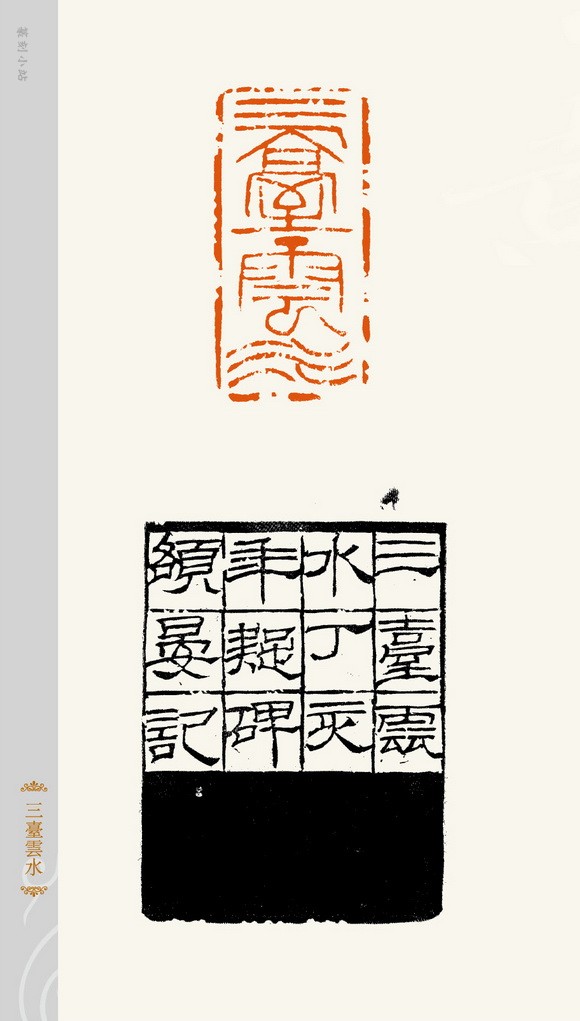 篆刻小站
三臺雲水
三臺雲
水丁亥
年疑碑
額晏記
三臺雲水